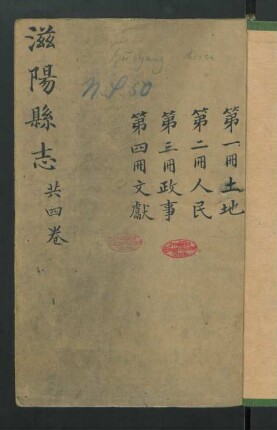 第一冊土地
第二冊人民
第三冊政事
第四冊文獻
滋陽縣志 共四卷